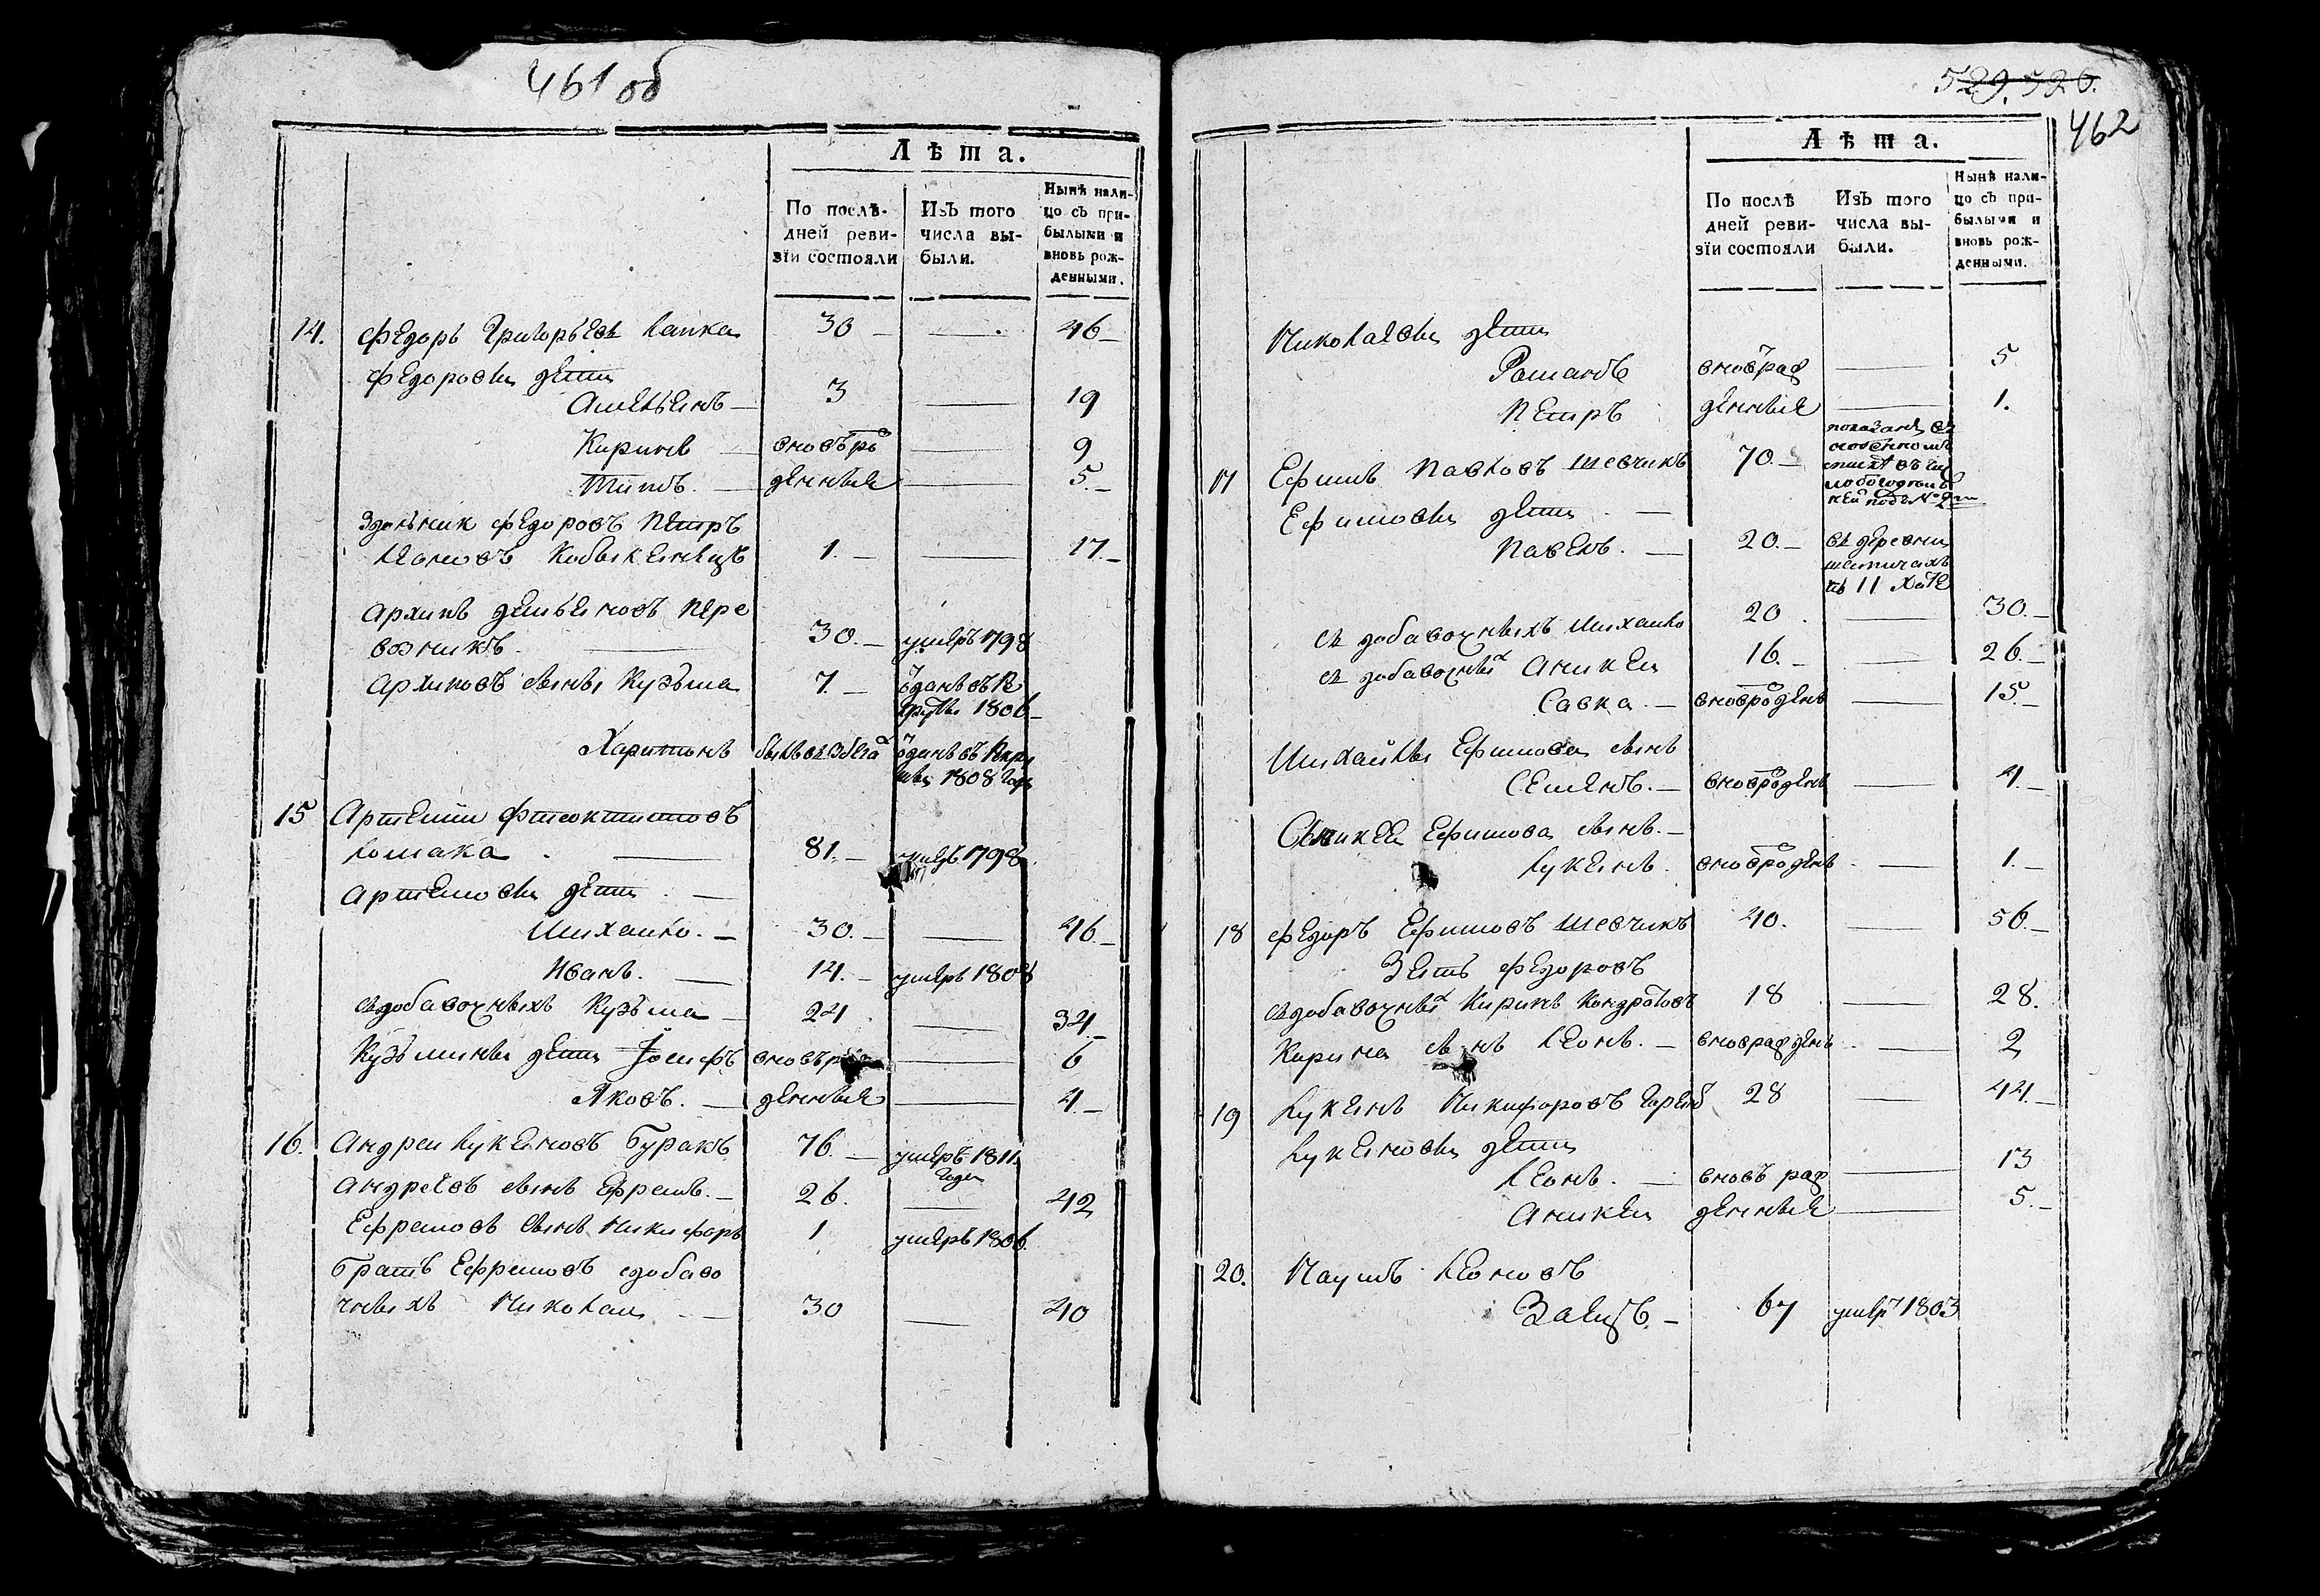 461 об
Лѣта.
По послѣ-
дней реви-
зїи состояли
Изъ того
числа вы-
были.
Нынѣ нали-
цо съ при-
былыми и
вновь рож-
денными.
14. Федоръ Григорьевъ Лапка 30 46
Федоровы дети
Амельянъ 3 19
Кирилъ вновъ ро 9
Титъ. денныя 5.
Здольник Федоровъ Петръ
Леоновъ Кобыкелецъ 1. 17.
Архипъ Демьяновъ Пере
возникъ. 30. умеръ 1798
Архиповъ сынъ Кузьма 7. отданъ въ ре
круты 1806
Харитонъ былъ въ бега отданъ въ рекру
ты 1808 года
15 Артемий Фтеоктистовъ
Ломака. 81. умеръ 1798
Артемовы дети.
Михайло. 30. 46.
Иванъ. 14. умеръ 1808
Здобавочныхъ Кузьма 24 34
Кузьмины дети Иосифъ вновъ ро 6
Яковъ. денныя 4
16. Андреи Лукяновъ Буракъ 76. умеръ 1811.
года
Андреевъ сынъ Ефремъ. 26. 42
Ефремовъ сынъ Никифоръ 1 умеръ 1806.
Братъ Ефремовъ здобаво
чныхъ Николаи 30 40
529. 526.
462
Лѣта.
По послѣ
дней реви-
зїи состояли
Изъ того
числа вы-
были.
Нынѣ нали-
цо съ при-
былыми и
вновь рож-
денными.
Николаевы дети
Романъ вновърад 5
Петръ денныя 1.
17 Ефимъ Павловъ Шевчикъ 70. показанъ въ
подъ №
Ефимовы дети.
Павелъ. 20. въ деревни
въ 11 хате
Зъ добавочныхъ Михайло 20. 30.
Зъ добавочных Аникеи 16. 26.
Савка. вновроденъ 15.
Михайлы Ефимова сынъ
Семенъ. вновроденъ 4.
Аникея Ефимова сынъ.
Лукянъ. вновроденъ 1.
18 Федоръ Ефимовъ Шевчикъ 40. 56.
Зять Федоровъ
Здобавочных Кирилъ Кондратовъ 18 28.
Кирила сынъ Леонъ. вноврадденъ 2
19 Лукянъ Никифоровъ 28 44.
Лукяновы дети
Леонъ. вновъ рад 13
Аникеи денныя 5.
20. Наумъ Леоновъ
Заяцъ. 67 умеръ 1803